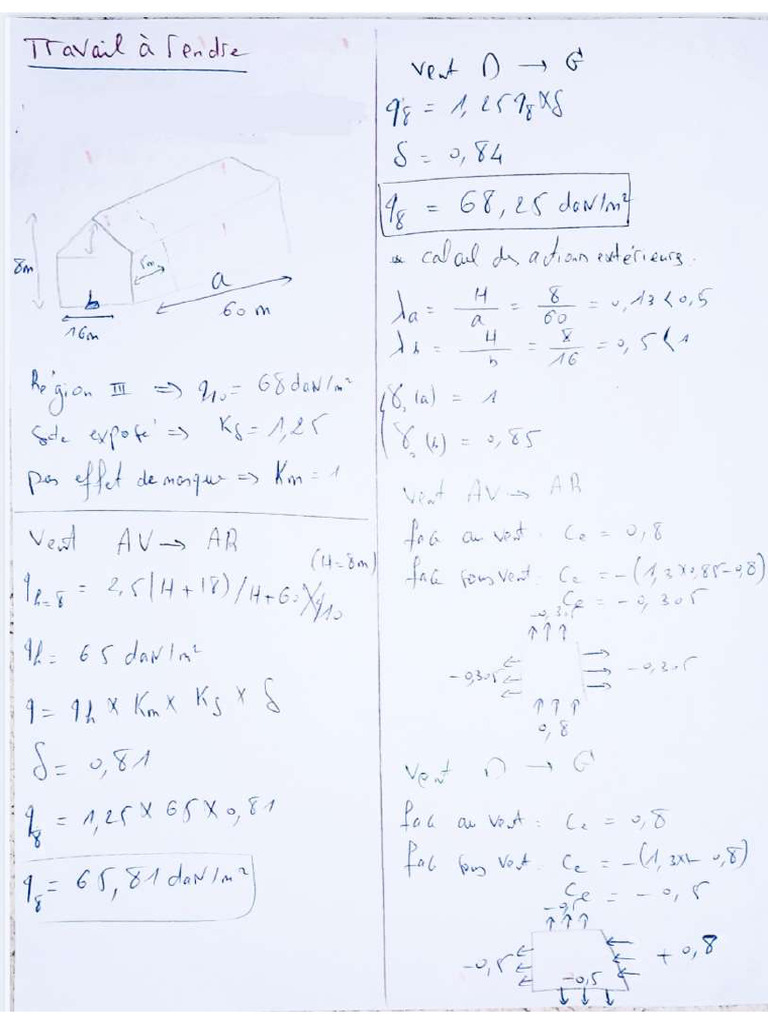 Travail à rendre
8m
5m
a
60 m
b
16m
Région III => q10 = 68 daN/m²
site exposé => Ks = 1,25
pas effet de masque => Km = 1
Vent AV → AR
(H=8m)
qh=8 = 2,5(H+18)/H+60 × q10
qh = 65 daN/m²
q = qh × Km × Ks × δ
δ = 0,81
q8 = 1,25 × 65 × 0,81
q8 = 65,81 daN/m²
Vent D → G
q8 = 1,25 q8 × δ
δ = 0,84
q8 = 68,25 daN/m²
* calcul des actions extérieurs.
λa = H/a = 8/60 = 0,13 < 0,5
λb = H/b = 8/16 = 0,5 < 1
γ0(a) = 1
γ0(b) = 0,85
Vent AV → AR
face au vent : Ce = 0,8
face sous vent : Ce = -(1,3×0,85-0,8)
Ce = -0,305
-0,305
-0,305
-0,305
0,8
Vent D → G
face au vent : Ce = 0,8
face sous vent : Ce = -(1,3×1-0,8)
Ce = -0,5
-0,5
-0,5
+0,8
-0,5